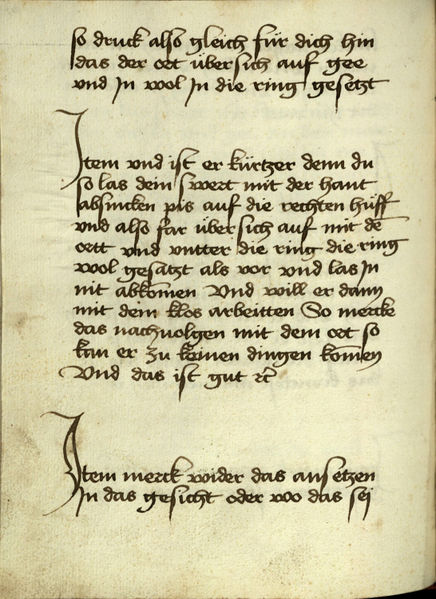 so druck also gleich für dich hin
das der ort übersich auf gee
vnd In wol In die ring gesetzt
Item vnd ist er kürtzer denn du
so las dein swert mit der hant
absincken pis auf die rechten hüff
vnd also far übersich auf mit dē
ortt vnd vntter die ring die ring
wol gesatzt als vor vnd las In
nit abkomen Vnd will er dann
mit dem klos arbeitten So mercke
das nachuolgen mit dem ort so
kan er zu keinen dingen komen
Vnd das ist gut rc̄
Item merck wider das ansetzen
In das gesicht oder wo das sei